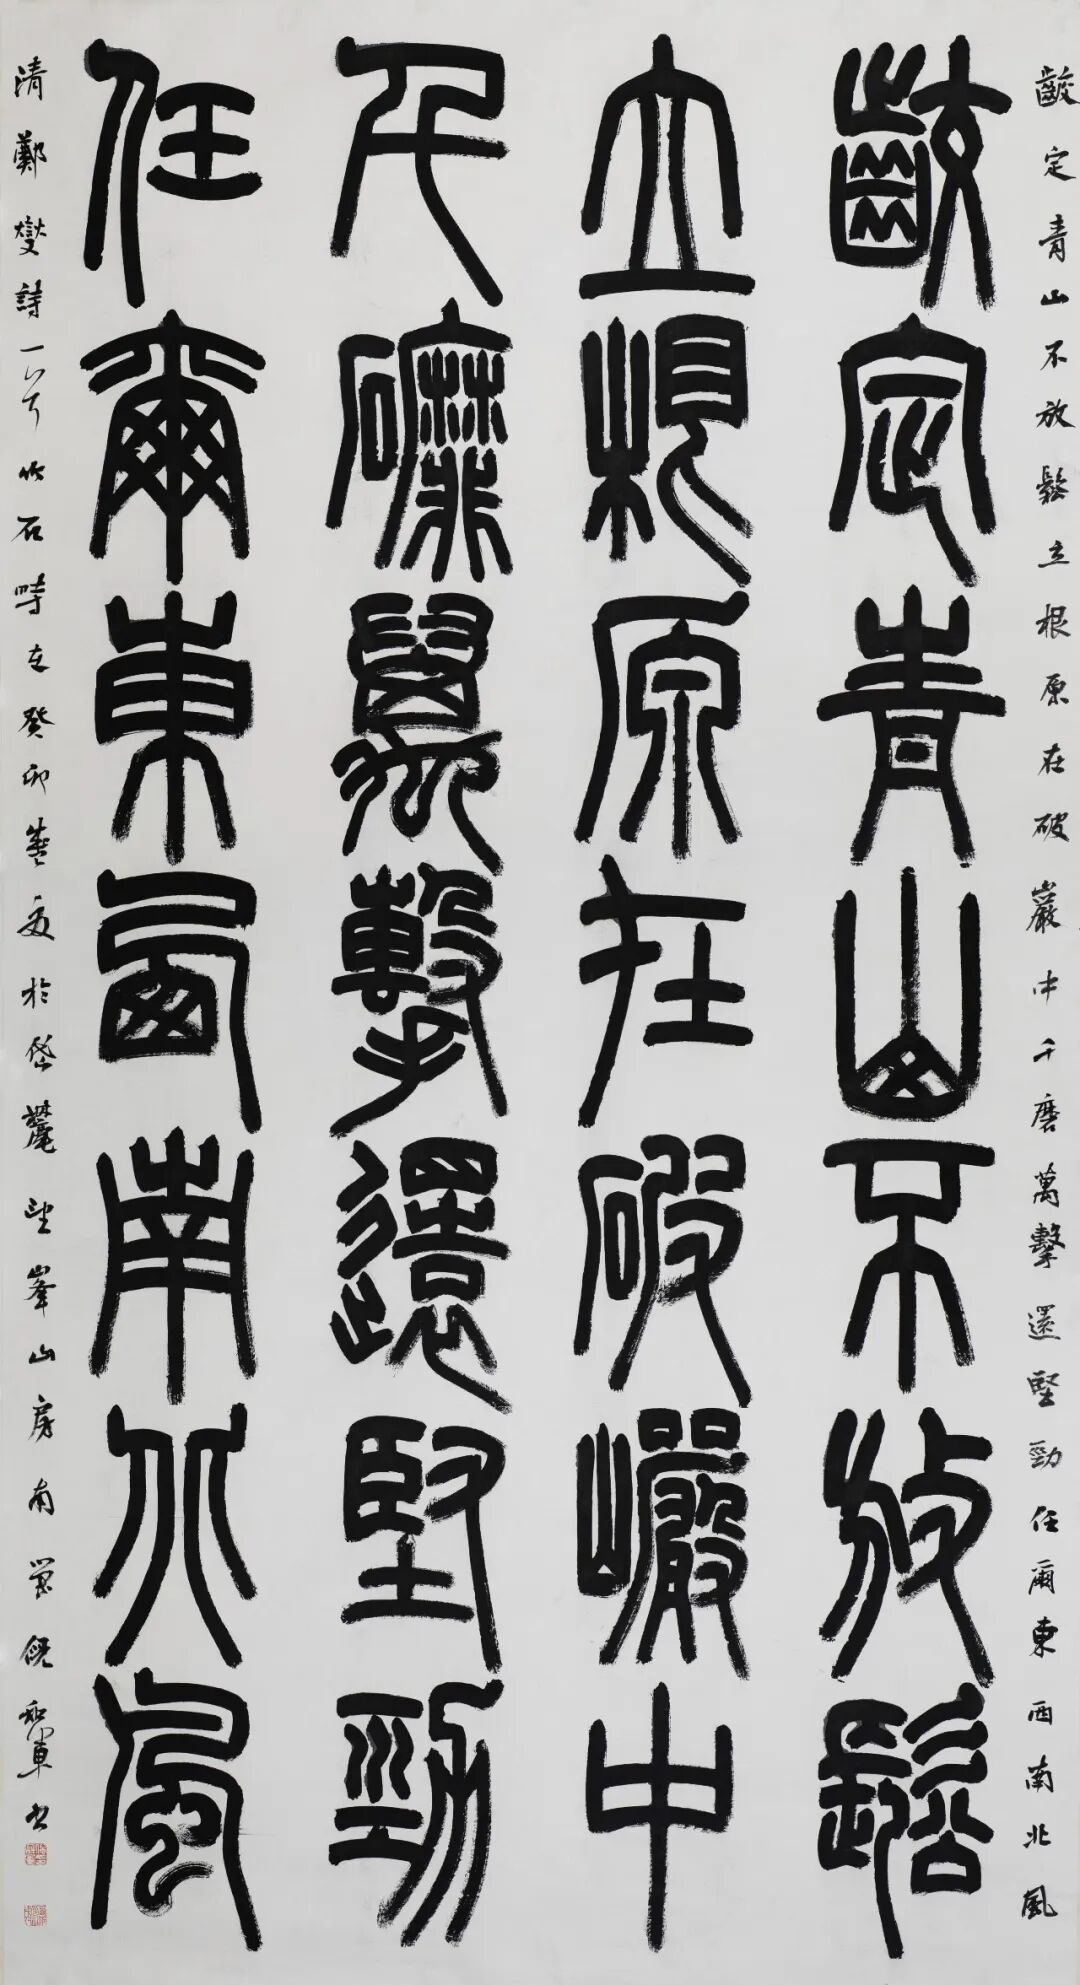 齩定青山不放鬆立根原在破巖中千磨萬擊還堅勁任爾東西南北風
齩定青山不放鬆
立根原在破巖中
千磨萬擊還堅勁
任爾東西南北風
清鄭燮詩一首竹石時在癸卯夏於岱麓望峯山房南窗倪和軍書